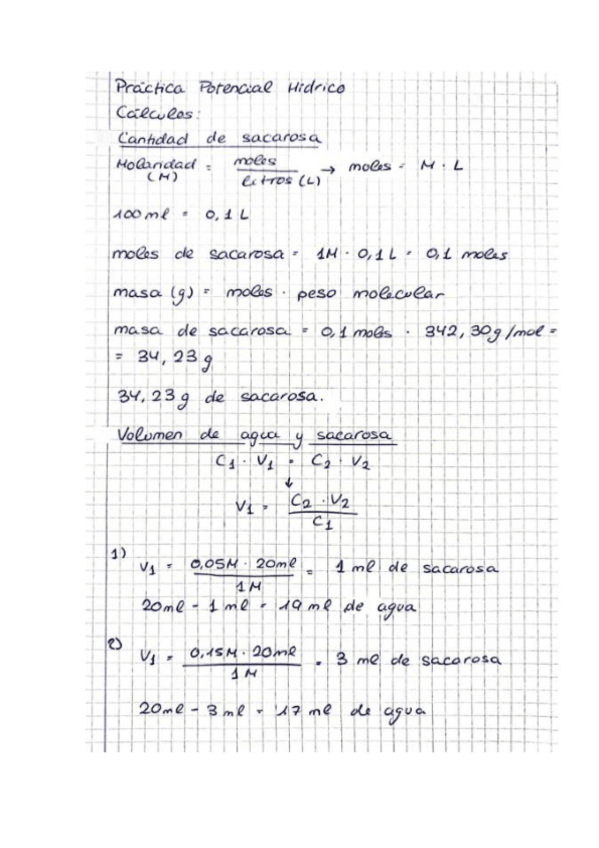 Práctica Potencial Hídrico
Cálculos:
Cantidad de sacarosa
Molaridad (M) = moles / litros (L) → moles = M · L
100 ml = 0,1 L
moles de sacarosa = 1M · 0,1 L = 0,1 moles
masa (g) = moles · peso molecular
masa de sacarosa = 0,1 moles · 342,30g/mol =
= 34,23 g
34,23 g de sacarosa.
Volumen de agua y sacarosa
C1 · V1 = C2 · V2
↓
V1 = C2 · V2 / C1
1) V1 = 0,05M · 20ml / 1M = 1 ml de sacarosa
20ml - 1 ml = 19 ml de agua
2) V1 = 0,15M · 20ml / 1M = 3 ml de sacarosa
20ml - 3ml = 17 ml de agua